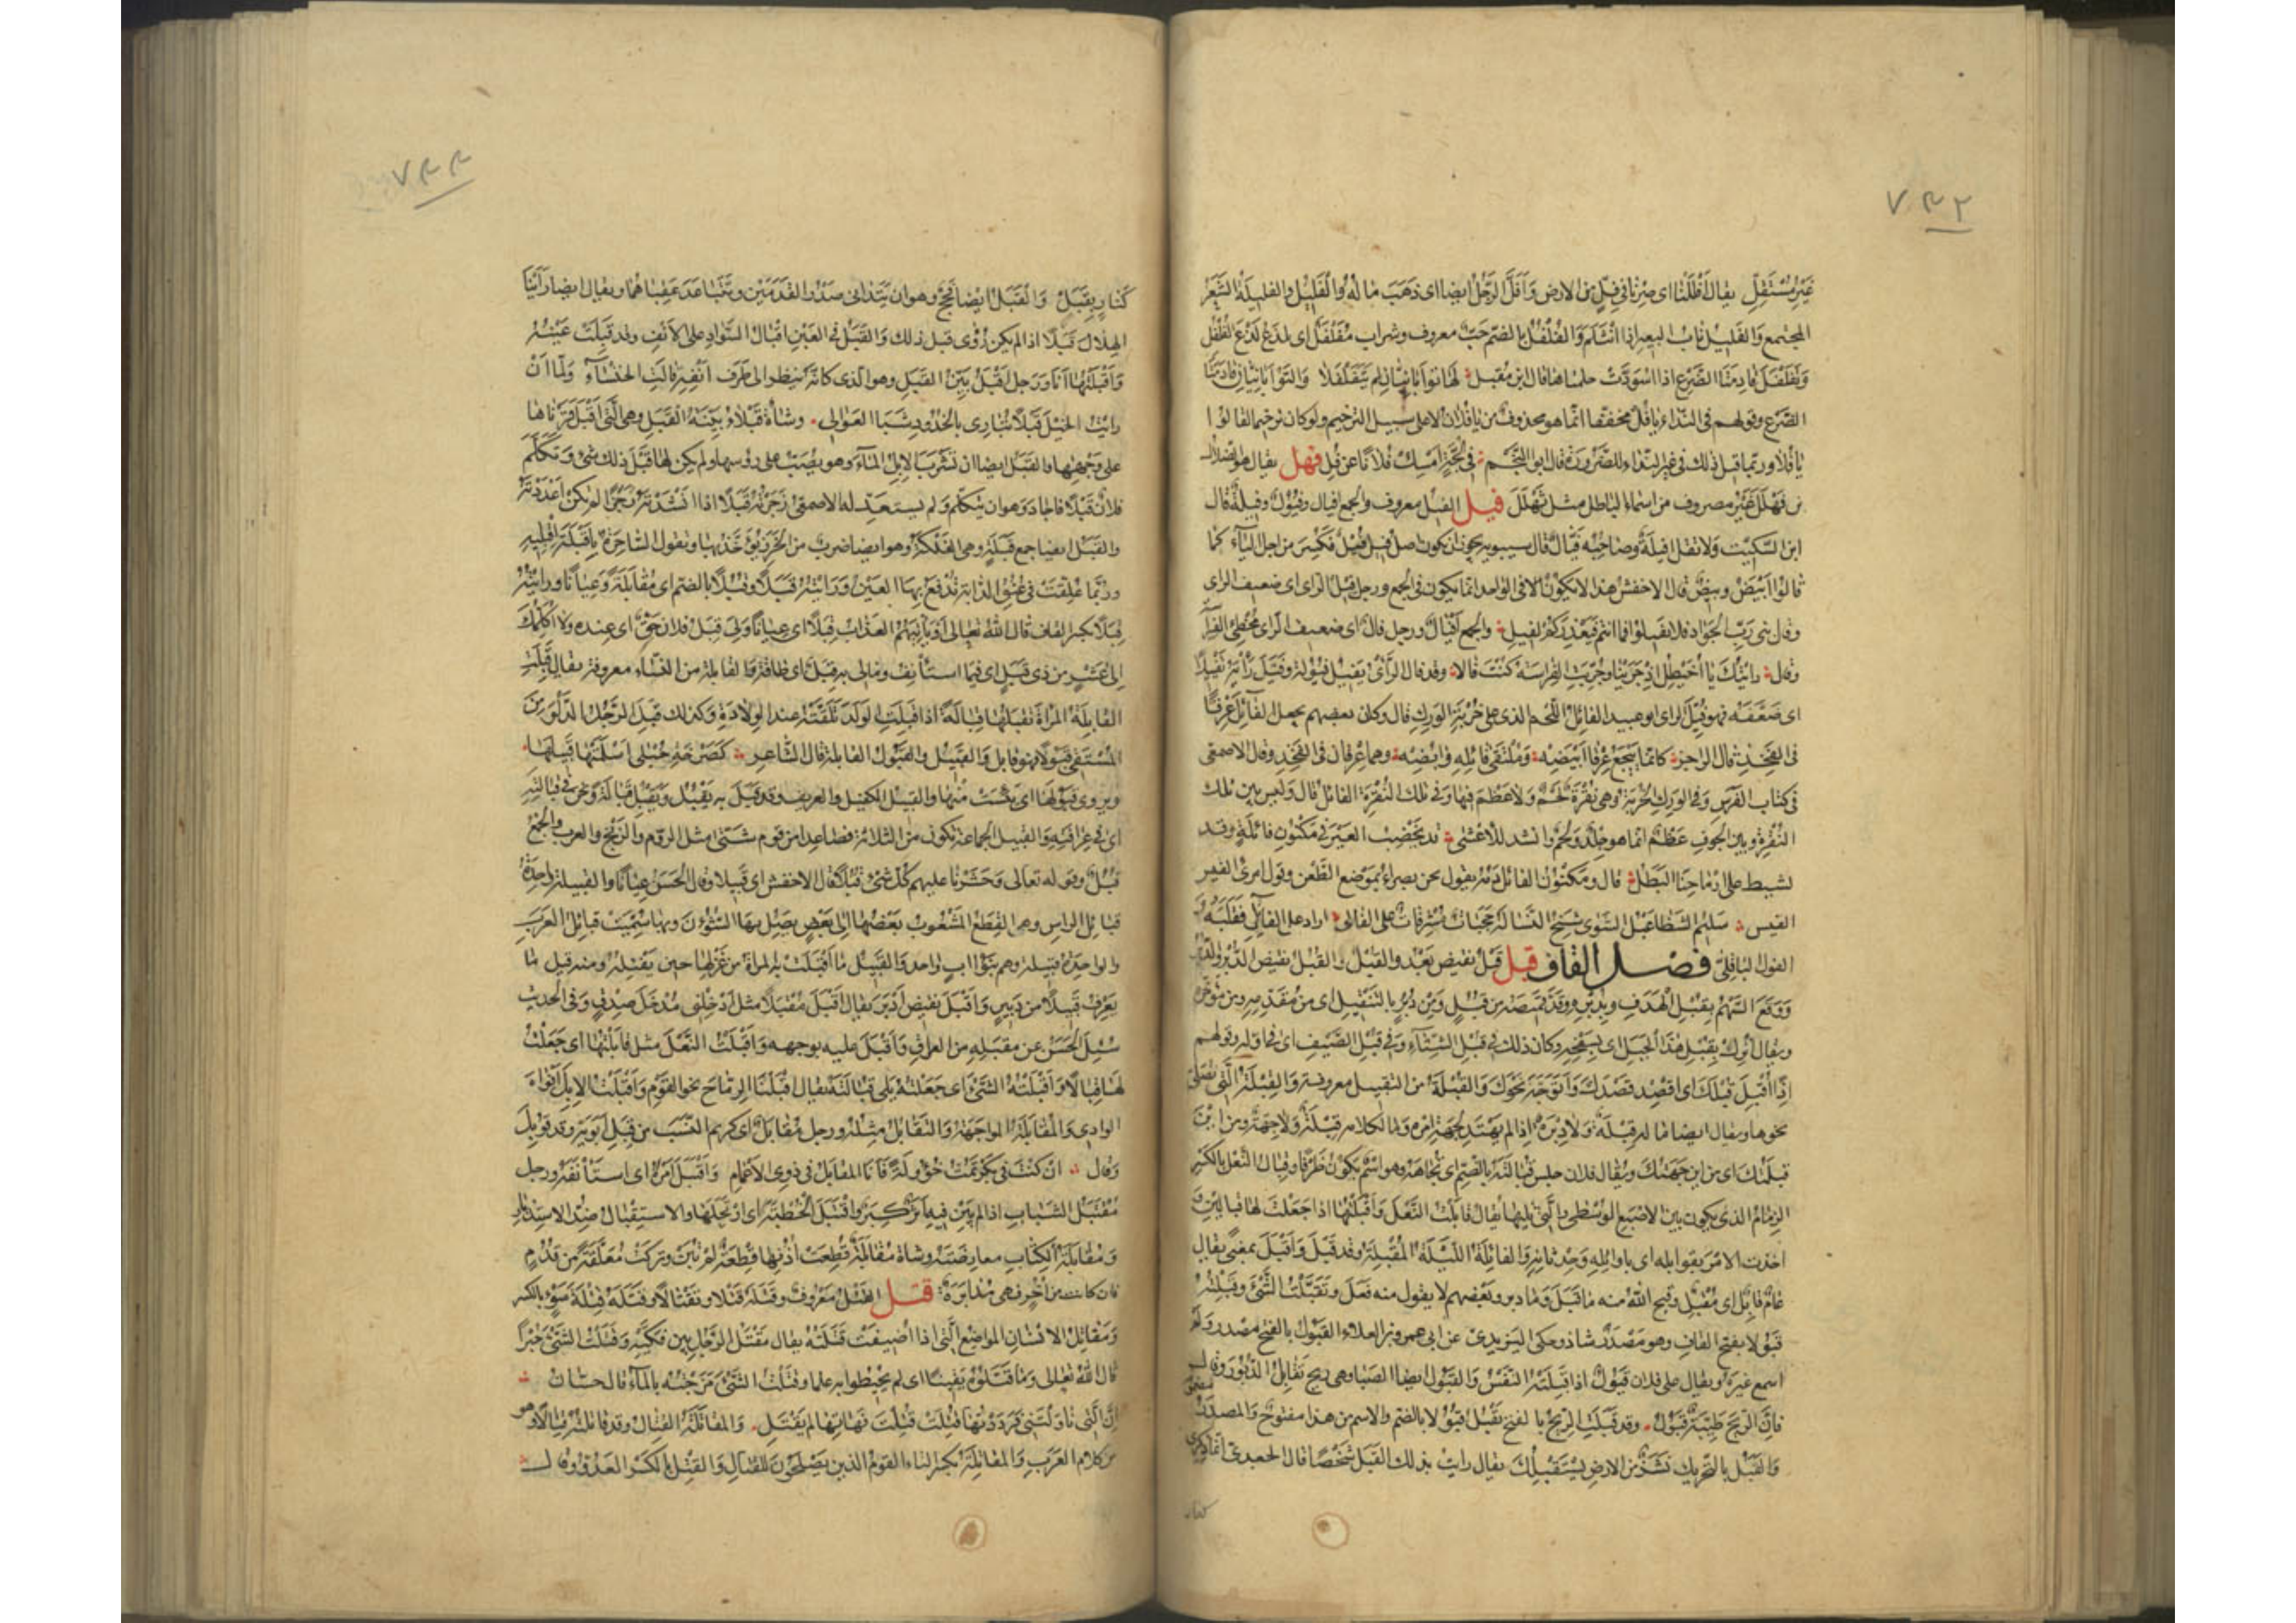 ٧٣٢
غَيْرُ مُسْتَفِلٍّ يقال اَفْلَلْنَا اى صِرْنَا فى فِلٍّ من الارض وَاَفَلَّ الرَجُلُ ايضا اى ذهَبَ مَالُهُ وَالْفَلِيْلُ والفليلة الشَّعَرُ
المجتمع وَالفَلِيْلُ نابُ البعير اذا انْثَلَمَ وَالفُلْفُلُ بالضّم حَبّ معروف وشراب مُفَلْفَلٌ اى يلذَعُ لَذْعَ الفُلْفُلِ
وَتَفَلْفَلَ قادِمَتَا الضَّرْع اذا اسْوَدَّتْ حلمتاهما قال ابن مُقبل لها تَوْاَبَانِيَّانِ لم يَتَفَلْفَلا وَالتَوْاَبَانِيَّانِ قادمتا
الضَّرع وقولهم فى النّداء يا فُلُ مخففًا انّما هو محذوف من يا فُلَان لا على سبيل الترخيم ولو كان ترخيما لقالوا
يا فُلَا وربّما قيل ذلك فى غير النداء للضّرورة قال ابو النجم فى لُجَّةٍ اَمْسِكْ فُلَانًا عن فُلِ فهل يقال هو الضلال
بن فَهْلَلَ غَيْرُ مصروف من اسماء الباطل مثل ثَهْلَلَ فيل الفيل معروف والجمع اَفيال وفُيُوْلٌ وفِيَلَةٌ قال
ابن السّكيت ولا تقل اَفْيِلَةٌ وصاحبُه فَيَّالٌ قال سيبويه يجوز ان يكون اصل فيل فُيْلٌ فكُسِرَ من اجل الياء كما
قالوا اَبْيَضُ وبِيْضٌ قال الاخفش هذا لا يكون فى الواحد انّما يكون فى الجمع ورجل فِيلُ الرّاى اى ضعيف الراى
وقال بنى رَبِّ الجَوَادِ فلا تَفِيلُوا فما انتم فنَعْذِرَكُمْ لِفِيلِ والجمع اَفْيَالٌ ورجل فالٌ اى ضعيف الراى مُخطئ الفِراسة
وقال رايتك يا اُخَيْطِلُ اِذْ جَرَيْنَا وجُرِّبَتِ الفِراسَةُ كنتَ فالا وقد فال الرَأْىُ يَفِيلُ فُيُوْلَةً وفَيَّلَ رَأْيَهُ تَفْيِيْلًا
اى ضَعَّفَه فهو فَيِّلُ الراى ابو عبيد الفائل اللّحم الذى على خُرْبَةِ الوَرِك قال وكان بعضهم يجعل الفائِلَ عِرْقًا
فى الفَخِذِ قال الراجز كانّما يَيْجَعُ عِرْقَا اَبْيَضِهْ ومُلْتَقَى فَائِلِهِ وَاُبُضِهْ وهما عِرقان فى الفخِذِ وقال الاصمعى
فى كتاب الفَرَسِ وفى الوَرِكِ الخُرْبَةُ وهى نُقْرَةٌ فيها لحمٌ ولا عظم فيها وفى تلك النُقْرَةِ الفائل قال وليس بين تلك
النُقْرَةِ وبين الجوف عَظمٌ انّما هو جِلْدٌ ولَحْمٌ وانشد للأعشى قد نَخْضِبُ العَيْرَ فى مَكْنُونِ فائِلِهِ وقد
يَشِيْطُ على اَرْمَاحِنَا البَطَلُ قال ومَكْنُوْنُ الفائل دَمُهُ يقول نحن بُصراءُ بموضع الطَّعْنِ وقول امرئ القيس
سَلِيْمُ الشَّظَا عَبْلُ الشَّوَى شَنِجُ النَّسَا له حَجَبَاتٌ مُشْرِفَاتٌ على الفالى اراد على الفائِلِ فقَلَبَهُ و
الفول الباقِلَّى فصل القاف قبل قَبْلُ نقيض بَعْدُ والقُبْلُ والقُبُلُ نقيض الدُّبْرِ والدُّبُرِ
وَوَقَعَ السَّهْمُ بِقُبْلِ الهَدَفِ وبِدُبُرِهِ وقَدَّ قميصَه من قُبُلٍ ومِنْ دُبُرٍ بالتثقيل اى من مُقَدَّمِهِ ومن مُؤَخَّرِهِ
ويقال اُنْزِلْ بِقُبْلِ هَذَا الجَبَلِ اى بِسَفْحِهِ وكان ذلك فى قُبْلِ الشِّتاءِ وفى قُبْلِ الصَّيْفِ اى فى اوّله وقولهم
اِذًا اُقْبِلَ قُبْلَكَ اى اَقْصِد قَصْدَكَ وَاَتَوَجَّه نَحْوَكَ وَالقُبْلَةُ من التقبيل معروفة وَالقِبْلَةُ الَّتى يُصلَّى
نحوها ويقال ايضا ما له قِبْلَةٌ ولا دِبْرَةٌ اِذا لم يَهْتَدِ لِجِهَةِ اَمْرِهِ وما لكلامه قِبْلَةٌ ولا جِهَةٌ ومن اَيْنَ
قِبْلَتُكَ اى من اين جِهَتُكَ ويُقال فلان جلس قُبالَتَه بالضّم اى تُجاهَهُ وهو اسْمٌ يكون ظَرْفًا وقِبالُ النَّعلِ بالكسر
الزِمامُ الذى يكون بين الاصبع الوُسْطى والَّتى تليها يقال قابَلْتُ النَّعْلَ وَاَقْبَلْتُها اذا جَعَلْتَ لها قبالَيْنِ و
اخذت الامْرَ بِقَوابِله اى باوائِلِه وحِدْثانِه وَالقابِلَةُ اللّيْلَةُ المُقْبِلَةُ وقد قَبَلَ وَاَقْبَلَ بمعنًى يقال
عامٌ قابِلٌ اى مُقْبِلٌ وقبح اللهُ منه ما قَبَلَ وما دبر وبَعْضهم لا يقول منه فَعَلَ وتَقَبَّلْتُ الشَّئَ وقَبِلْتُهُ
قَبُوْلًا بفتح القاف وهو مَصْدَرٌ شاذ وحكى اليزيدى عن ابى عمرو بن العلاء القَبُوْلُ بالفتح مصدر ولَم
اسمع غيرَه ويقال على فلان قَبُوْلٌ اذا قَبِلَتْهُ النَّفْسُ وَالقَبُوْلُ ايضا الصَّبَا وهى ريح تقابِلُ الدَّبُوْرَ وقال
فاِنَّ الرّيحَ طَيِّبَةٌ قَبُوْلُ وقد قَبَلَتِ الرّيْحُ بالفتح تَقْبُلُ قُبُوْلًا بالضّم والاسم من هذا مفتوحٌ وَالمصدر
وَالقَبَلُ بالتحريك نَشَزٌ من الارض يَسْتَقْبِلُكَ يقال رايت بذلك القَبَلِ شَخْصًا قال الجعدىّ انّما ذِكْرِى
كنار
٧٣٣
كَنَارٍ بِقَبَلْ وَالقَبَلُ ايْضا فَحَجٌ وهو ان يَتَدَانى صَدْرُ القَدَمَيْن ويَتَباعَد عَقِباهُما ويقال ايضا رَأَيْنَا
الهِلال قَبَلًا اذا لم يكن رُؤِىَ قبل ذلك وَالقَبَلُ فى العَيْنِ اِقْبَالُ السَّوَادِ على الاَنْفِ وقد قَبِلَتْ عَيْنُهُ
وَاَقْبَلْتُهَا اَنَا ورَجل اَقْبَلُ بَيِّنُ القَبَلِ وهو الّذى كانّه ينظر الى طَرَفِ اَنْفِهِ قالت الخَنْسَاءُ ولَمَّا اَنْ
رايت الخَيْلَ قُبْلًا تُبَارِى بالخُدُودِ شَبَا العَوَالِى وشاةٌ قَبْلَاءُ بيّنةُ القَبَلِ وهى الَّتى اَقْبَلَ قَرْنَاها
على وَجْهِها والقَبَلُ ايضا ان تَشْرَبَ الاِبِلُ المَاءَ وهو يُصَبُّ على رؤسِها ولم يكن لها قَبْلَ ذلك شئ وتَكَلَّمَ
فلانٌ قَبَلًا فاجَاد وَهو ان يتكلّم ولم يستعدّ له الاصمعىّ رَجَزْتُهُ قَبَلًا اذا اَنْشَدْتَهُ رَجَزًا لم تكن اَعْدَدْتَهُ
والقَبَلُ ايضا جمع قَبَلَةٍ وهى الفَلْكَةُ وهو ايضا ضرب من الخَرَزِ يُؤَخَّذُ بها وتقول السّاحِرَةُ يا قَبَلَةُ اَقْبِلِيهِ
وربّما عُلِّقَتْ فى عُنُقِ الدّابَةِ تُدْفَعُ بِها العَيْن وَرَايْتُهُ قَبَلًا وقُبُلًا بالضم اى مُقَابَلَةً وعِيَانًا ورايْتُهُ
قِبَلًا بكسر القاف قالَ اللهُ تعالى اَوْ يَأْتِيَهُمُ العَذابُ قِبَلًا اى عِيَانًا وَلِى قِبَلَ فلانٍ حَقٌّ اى عِنده ولا اُكَلِّمُكَ
اِلى عَشْرٍ من ذى قِبَلٍ اى فيمَا اَسْتَأْنِفُ وما لى به قِبَلٌ اى طاقَةٌ وَالقابِلة من النّساء معروفة يقال قَبِلَتِ
القابِلَةُ المَرْاَةَ تَقْبَلُهَا قِبالَةً اذا قَبِلَتِ الوَلَدَ تَلَقَّتْهُ عندَ الوِلَادَةِ وكذلك قَبِلَ الرَّجُلُ الدَلْوَ من
المُسْتَقِى قَبُوْلًا فهو قابل وَالقَبِيْلُ والقَبُوْلُ القابلة قال الشّاعر كَصَرْخَةِ حُبْلَى اَسْلَمَتْهَا قَبِيلُها
ويروى قَبُوْلُها اى يَئِسَتْ مِنْها والقبيل الكفيل والعريف وقد قَبَلَ به يَقْبُلُ ويَقْبِلُ قَبَالَةً ونحن فى قبالَتِهِ
اى فى عِرافَتِه وَالقبيل الجماعة تكون من الثلاثة فصاعدا من قوم شَتَّى مثل الرّوم والزّنج والعرب والجمع
قُبُلٌ وقوله تعالى وحَشَرْنا عليهم كُلَّ شَئ قُبُلًا قال الاخفش اى قَبِيلا وقال الحَسَنُ عِيَانًا والقبيلة واحِدَةُ
قبائل الراس وهى القِطَعُ المَشْعُوبُ بَعْضُها اِلى بَعْضٍ يَصِل بِها الشُّؤُنُ وبها سُمِّيَتْ قبائِلُ العَرَبِ
والواحِدة قبيلة وهم بَنُوْ ابٍ واحد وَالقَبِيْلُ ما اَقْبَلَتْ به المرْاة من غَزْلِها حين تَفْتِلُهُ ومنه قيل ما
يَعْرِفُ قَبِيلًا من دَبِيرٍ وَاَقْبَلَ نقيض اَدْبَرَ يقال اَقْبَلَ مُقْبَلًا مثل اَدْخِلْنى مُدْخَلَ صِدْقٍ وفى الحديث
سُئِلَ الحَسَنُ عن مقبَلِهِ من العراق وَاَقْبَلَ عليه بوجهه وَاَقْبَلْتُ النَّعْلَ مثل قابَلْتُها اى جَعَلْتُ
لها قِبالًا وَاَقْبَلْتُهُ الشَّئَ اى جَعَلْتُهُ يَلِى قُبَالَتَهُ يقال اَقْبَلْنَا الرماحَ نحو القَوْمِ وَاَقْبَلْتُ الاِبِلَ اَفْوَاهَ
الوادى وَالمُقابَلَةُ المواجَهَةُ وَالتّقابُلُ مثله ورجل مُقابَلٌ اى كريم النّسَبِ من قِبَلِ اَبَوَيْهِ وقد قُوبِلَ
وقال ان كنتَ فى بَكْرٍ تَمُتُّ خُؤُوْلَةً فَاَنَا المُقابَلُ فى ذَوِى الاَعْمَامِ وَاقْتَبَلَ اَمْرَهُ اى استَأْنَفَهُ ورجل
مُقْتَبَلُ الشَّبابِ اذا لم يَبِنْ فيهِ اَثَرُ كِبَرٍ وَاقْتَبَلَ الخُطْبَةَ اى ارْتَجَلَها والاستِقْبالُ ضِدُّ الاستِدْبار
وَمُقابَلَةُ الكِتابِ معارضَتُهُ وشاةٌ مُقابَلَةٌ قُطِعَتْ اُذُنِها قِطْعَةٌ لم تَبِنْ وتُرِكَتْ مُعَلَّقَةً من قُدُمٍ
فان كانت من اُخُرٍ فهى مُدَابَرَةٌ قتل القَتْلُ مَعْرُوفٌ وقَتَلَهُ قَتْلًا وتَقْتَالًا وقَتَلَهُ قِتْلَةَ سَوْءٍ بالكسر
وَمَقَاتِلُ الاِنْسَانِ المواضِعُ الَّتى اذا اُصِيْبَتْ قَتَلَتْهُ يقال مَقْتَلُ الرَّجُلِ بين فَكَّيْهِ وقَتَلْتُ الشَّئَ خُبْرًا
قال اللهُ تعالى وَمَا قَتَلُوْهُ يَقِينًا اى لم يُحِيْطُوا به علما وقَتَلْتُ الشَّئَ مَزَجْتُه بالماءِ قال حسّان
اِنَّ الَّتى ناوَلْتَنِى فَرَدَدْتُها قُتِلَتْ قُتِلْتَ فهاتِها لم تُقْتَلِ وَالمُقاتَلَةُ القِتال وقد قاتلتُه قِيتالًا وهو
من كلام العَرَبِ وَالمُقاتِلَةُ بكسر التاء القومُ الّذين يَصْلُحُوْنَ للقِتالِ وَالقِتْلُ بالكسر العَدُوُّ وقال